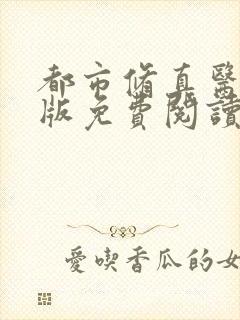 都市脩真醫
版免費閱讀
愛喫香瓜的女